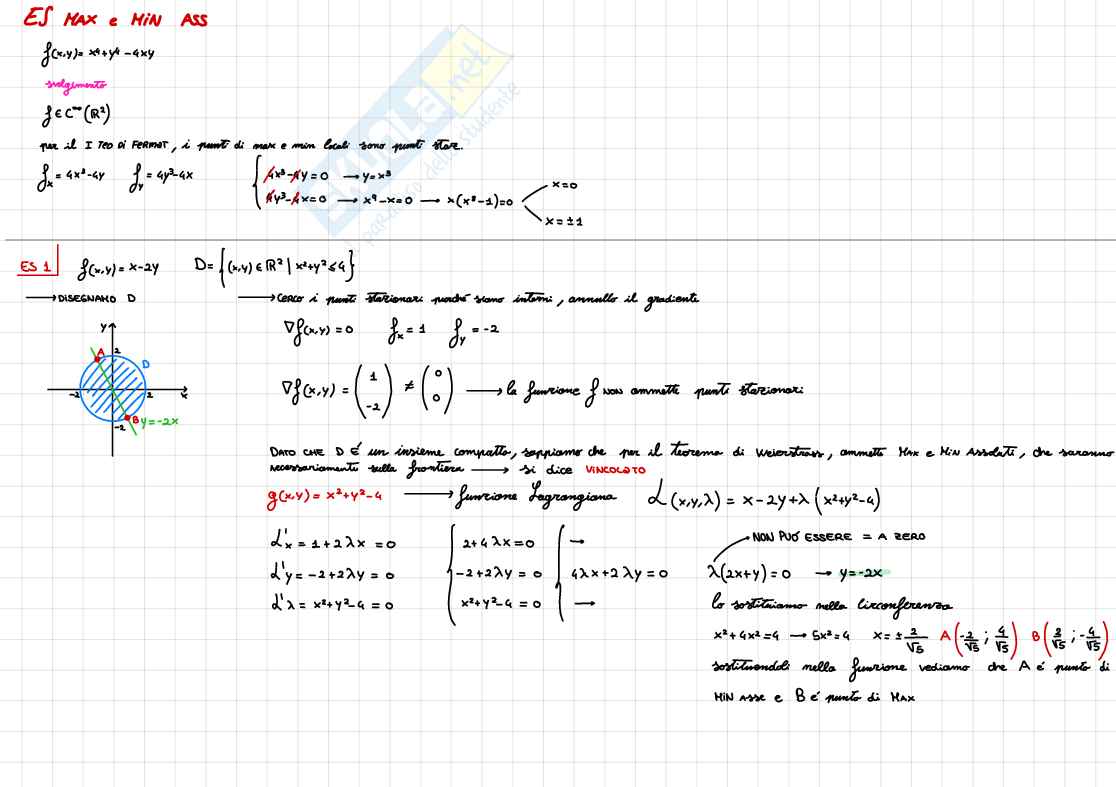 ES MAX e MIN ASS
f(x,y)= x⁴+y⁴-4xy
svolgimento
f∈C^∞(ℝ²)
per il I TEO DI FERMAT, i punti di max e min locali sono punti staz.
fx = 4x³-4y fy = 4y³-4x
{ 4x³-4y=0 → y=x³
4y³-4x=0 → x⁹-x=0 → x(x⁸-1)=0
x=0
x=±1
SKUOLA.net
il paradiso dello studente
ES 1 f(x,y)= x-2y D= {(x,y)∈ℝ² | x²+y²≤4}
→ DISEGNAMO D
→ CERCO i punti stazionari purché siano interni, annullo il gradiente
∇f(x,y)=0 fx = 1 fy = -2
y
A 2 D
-2 2 x
-2 B y=-2x
∇f(x,y) = (1 -2) ≠ (0 0) → la funzione f NON ammette punti stazionari
DATO CHE D É un insieme compatto, sappiamo che per il teorema di Weierstrass, ammette MAX e MIN ASSOLUTI, che saranno
necessariamente sulla frontiera → si dice VINCOLATO
g(x,y)= x²+y²-4 → funzione Lagrangiana L(x,y,λ) = x-2y+λ(x²+y²-4)
L'x = 1+2λx = 0 { 2+4λx=0 { →
L'y = -2+2λy = 0 -2+2λy = 0 4λx+2λy=0
L'λ = x²+y²-4 = 0 x²+y²-4 = 0 →
NON PUÓ ESSERE = A ZERO
λ(2x+y)=0 → y=-2x
lo sostituiamo nella circonferenza
x²+4x²=4 → 5x²=4 x=±2/√5 A(-2/√5 ; 4/√5) B(2/√5 ; -4/√5)
sostituendoli nella funzione vediamo che A é punto di
MIN ASSE e B é punto di MAX